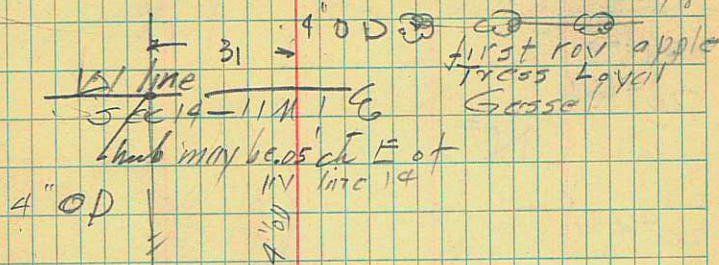 4" O D
31
first row apple
Tress Loyal
Gessel
W line
Sec 14 - 11 N 1 E
hub may be .05 ch E of
W line 14
4" OD
4" OD